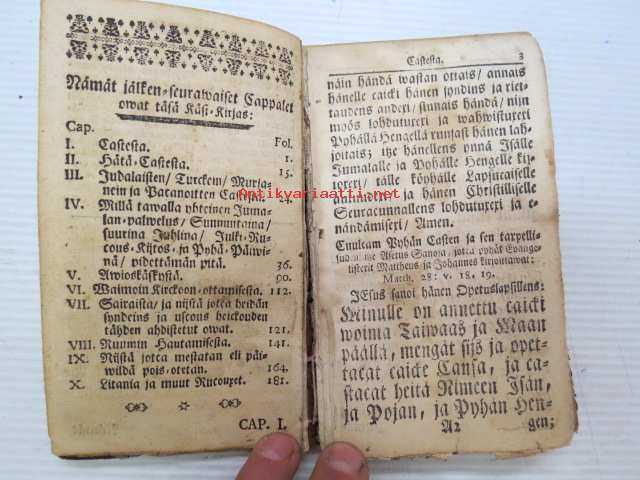 Nämät jälken-seurawaiset Cappalet
owat täsä Käsi-Kirjas:
Cap. Fol.
I. Castesta. 1.
II. Hätä-Castesta. 15.
III. Judalaisten/ Turckein/ Murja-
nein ja Pacanoitten Castesta. 24.
IV. Millä tawalla yhteinen Juma-
lan-palwelus/ Sunnuntaina/
suurina Juhlina/ Julk-Ru-
cous-Kijtos-ja Pyhä-Päiwi-
nä/ pidettämän pitä. 36.
V. Awioskäskystä. 90.
VI. Waimoin Kirckoon-ottamisesta. 112.
VII. Sairaista/ ja nijstä jotca heidän
syndeins ja uscons heickouden
tähden ahdistetut owat. 121.
VIII. Ruumin Hautamisesta. 141.
IX. Nijstä jotca mestatan eli päi-
wildä pois-otetan. 164.
X. Litania ja muut Rucouxet. 181.
CAP. I.
Castesta. 3
näin händä wastan ottais/ annais
hänelle caicki hänen syndins ja riet-
taudens andexi/ siunais händä/ nijn
moös lohdutuxexi ja wahwistuxexi
Pyhällä Hengellä runsast hänen lah-
joitais; itze hänellens ynnä Isälle
Jumalalle ja Pyhälle Hengelle kij-
toxexi/ tälle köyhälle Lapsucaiselle
ja hänen Christilliselle
Seuracunnallens lohdutuxexi ja e-
nändämisexi/ Amen.
Cuulcam Pyhän Casten ja sen tarpelli-
suden itze Asetus Sanoja, jotca pyhät Evange-
listerit Mattheus ja Johannes kirjoittawat:
Matth. 28: v. 18, 19.
JEsus sanoi hänen Opetuslapsillens:
Minulle on annettu caicki
woima Taiwaas ja Maan
päällä, mengät sijs ja opet-
tacat caicke Cansa, ja ca-
stacat heitä Nimeen Isän,
ja Pojan, ja Pyhän Hen-
A2 gen;
Antikvariaatti.net